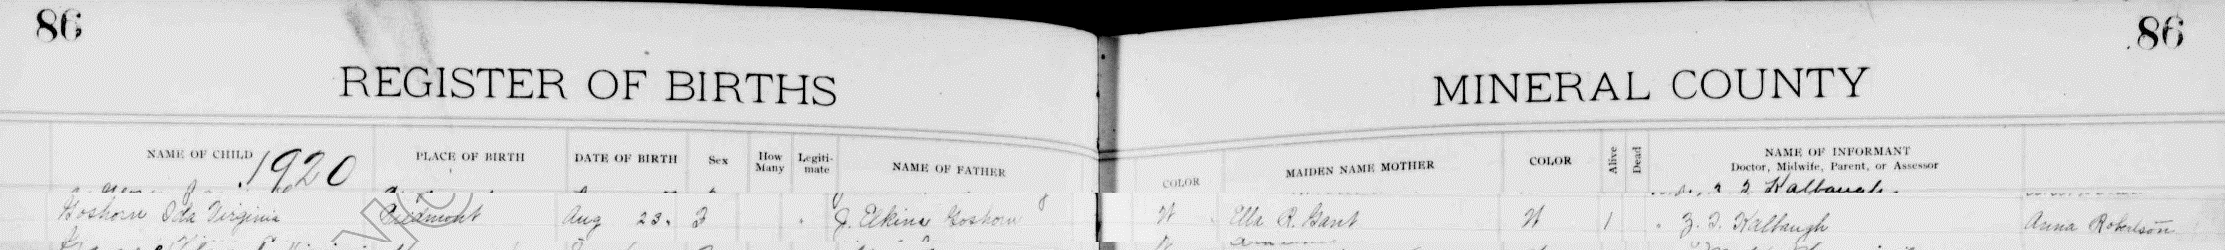 86 86
REGISTER OF BIRTHS MINERAL COUNTY
NAME OF CHILD 1920 PLACE OF BIRTH DATE OF BIRTH Sex How Many Legiti-mate NAME OF FATHER COLOR MAIDEN NAME MOTHER COLOR Alive Dead NAME OF INFORMANT
Doctor, Midwife, Parent, or Assessor
Kalbaugh
Goshorn Ida Virginia Piedmont Aug 23. F J. Elkins Goshorn W Ella R. Gant W 1 Z. T. Kalbaugh Anna Robertson